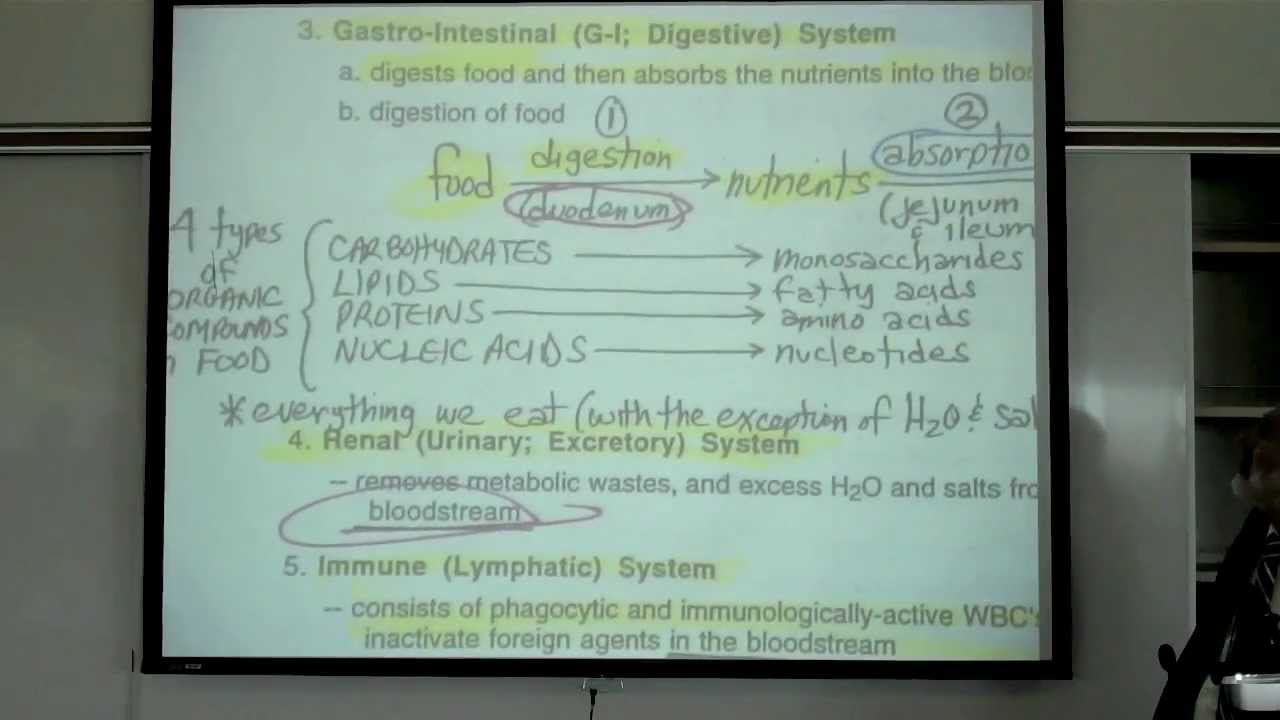 3. Gastro-Intestinal (G-I; Digestive) System
a. digests food and then absorbs the nutrients into the
b. digestion of food ①
②
food digestion nutrients absorptio
(duodenum) (jejunum
& ileum
4 types
of
ORGANIC
COMPOUNDS
FOOD
CARBOHYDRATES → monosaccharides
LIPIDS → fatty acids
PROTEINS → amino acids
NUCLEIC ACIDS → nucleotides
*everything we eat (with the exception of H2O &
4. Renal (Urinary; Excretory) System
-- removes metabolic wastes, and excess H2O and salts
bloodstream
5. Immune (Lymphatic) System
-- consists of phagocytic and immunologically-active WBC's
inactivate foreign agents in the bloodstream